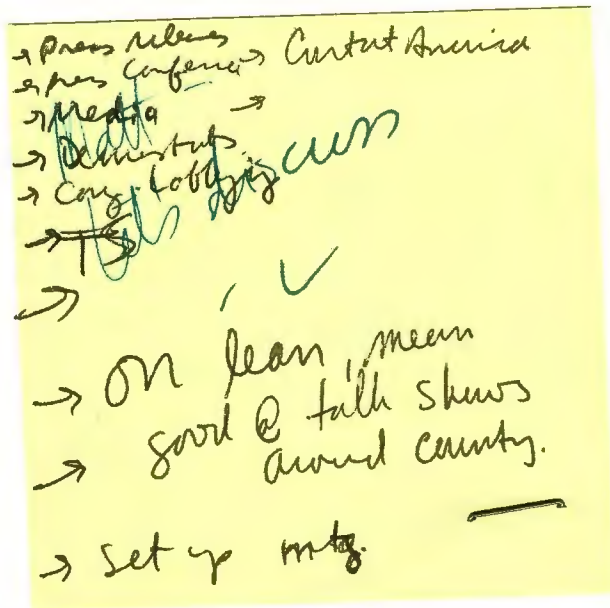 → Press releases
→ press conference → Contact America
→ Media →
Matt -
→ Demonstrats.
→ Cong. Lobbying
Let's discuss
→ TS
→
→ On lean, mean
→ good @ talk shows
around country.
→ Set up mtg.